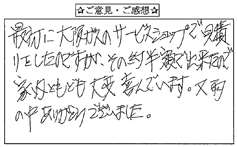 ☆ご意見・ご感想☆
最初に大阪ガスのサービスショップで見積
りをしたのですが、その約半額で出来たので
家内ともども大変喜んでいます。大雨
の中ありがとうございました。